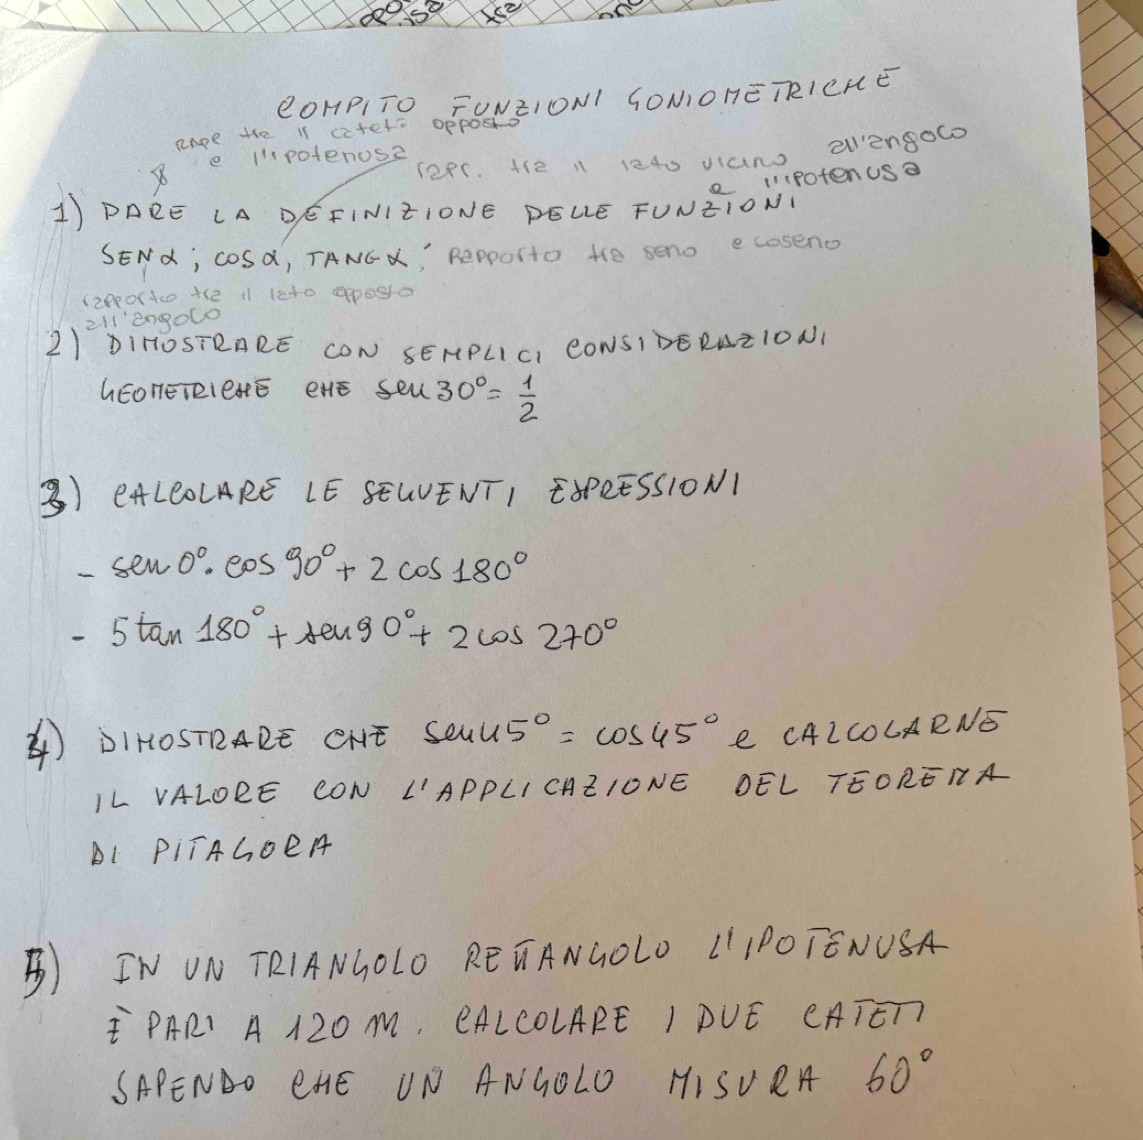 COMPITO FUNZIONI GONIOMETRICHE
rapp tra il cateto opposto
e l'ipotenusa
rapr. tra il lato vicino all'angolo
e l'ipotenusa
1) DARE LA DEFINIZIONE DELLE FUNZIONI
SENα; COSα, TANGα; Rapporto tra seno e coseno
rapporto tra il lato opposto
all'angolo
2) DIMOSTRARE CON SEMPLICI CONSIDERAZIONI
GEOMETRICHE CHE sen 30° = 1/2
3) CALCOLARE LE SEGUENTI ESPRESSIONI
- sen 0° · cos 90° + 2 cos 180°
- 5 tan 180° + sen 90° + 2 cos 270°
4) DIMOSTRARE CHE sen 45° = cos 45° e CALCOLARNE
IL VALORE CON L'APPLICAZIONE DEL TEOREMA
DI PITAGORA
5) IN UN TRIANGOLO RETTANGOLO L'IPOTENUSA
È PARI A 120 M. CALCOLARE I DUE CATETI
SAPENDO CHE UN ANGOLO MISURA 60°